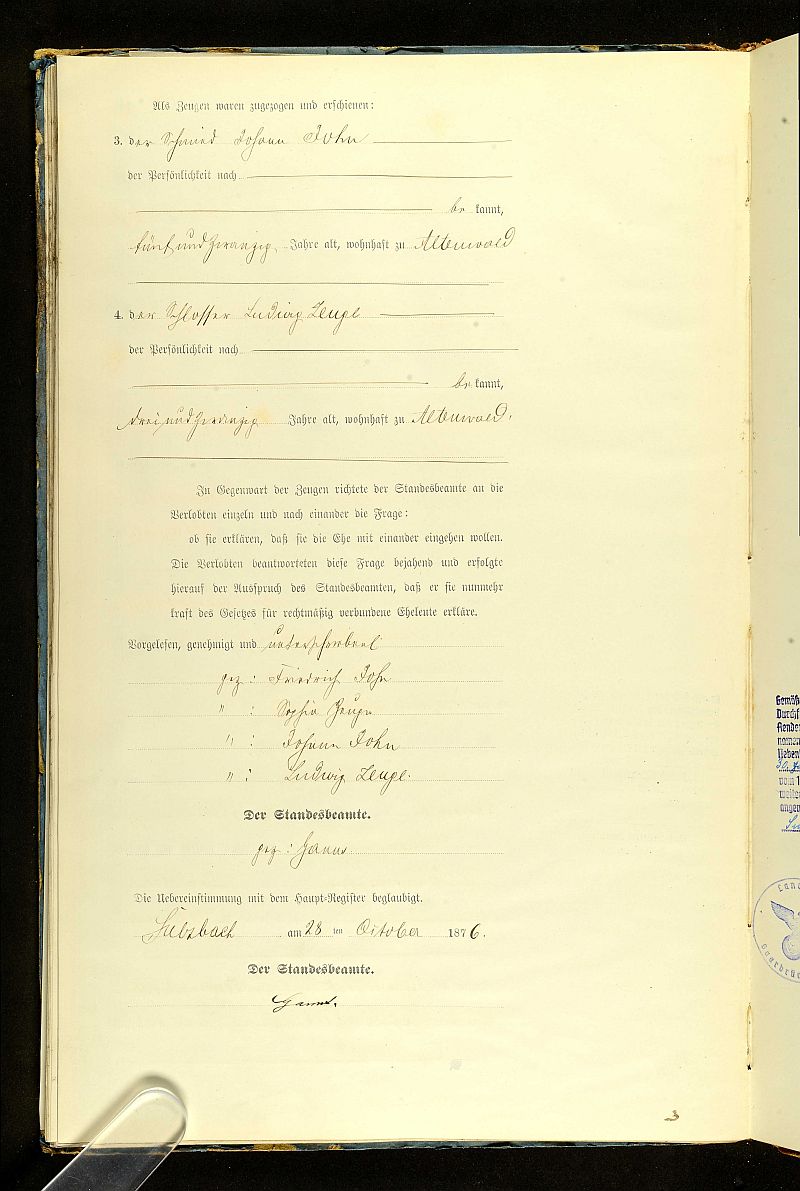 Als Zeugen waren zugezogen und erschienen:
3. der Schmied Johann John
der Persönlichkeit nach
be kannt,
fünf und zwanzig Jahre alt, wohnhaft zu Altenwald
4. der Schlosser Ludwig Zeupe
der Persönlichkeit nach
be kannt,
drei und zwanzig Jahre alt, wohnhaft zu Altenwald.
In Gegenwart der Zeugen richtete der Standesbeamte an die
Verlobten einzeln und nach einander die Frage:
ob sie erklären, daß sie die Ehe mit einander eingehen wollen.
Die Verlobten beantworteten diese Frage bejahend und erfolgte
hierauf der Ausspruch des Standesbeamten, daß er sie nunmehr
kraft des Gesetzes für rechtmäßig verbundene Eheleute erkläre.
Vorgelesen, genehmigt und unterschrieben
gez: Friedrich John
" : Sophia Zeupe
" : Johann John
" : Ludwig Zeupe.
Der Standesbeamte.
gez:
Die Uebereinstimmung mit dem Haupt-Register beglaubigt.
Sulzbach am 28 ten October 1876.
Der Standesbeamte.
3
Gemäß
Durchf